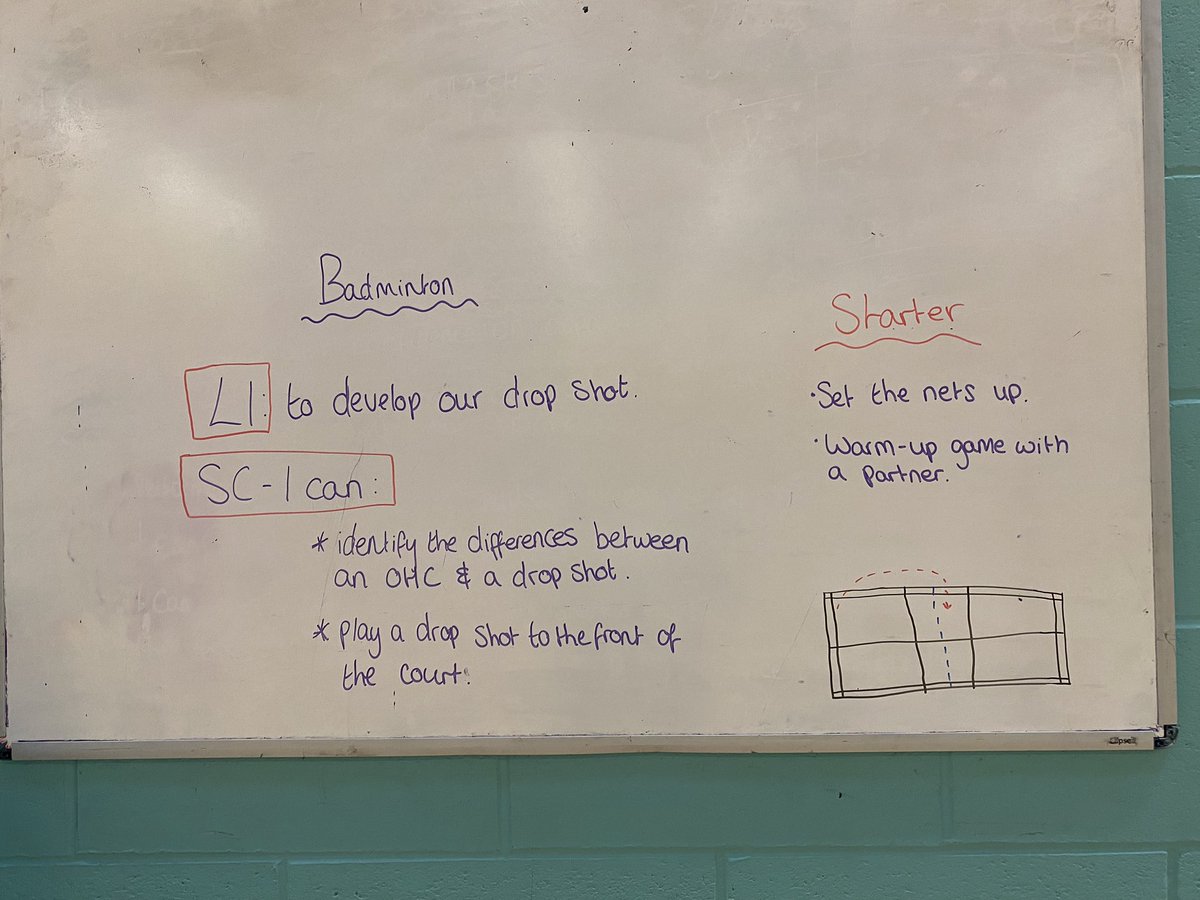 Badminton
LI: to develop our drop shot.
SC-I can:
* identify the differences between
an OHC & a drop shot.
* play a drop shot to the front of
the court.
Starter
· Set the nets up.
· Warm-up game with
a partner.